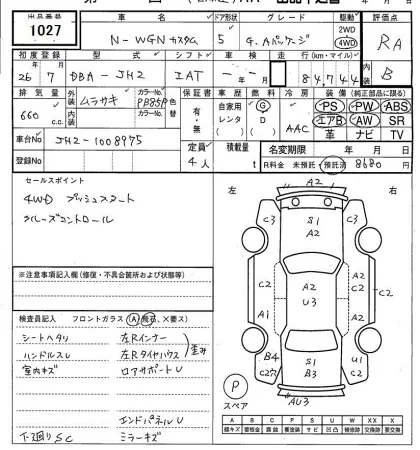 出品番号 車名 ドア形状 グレード 駆動 評価点
1027 N-WGN カスタム 5 G.Aパッケージ 2WD 4WD RA
初度登録 型式 シフト 車検 走行(km・マイル) 内装
26年7月 DBA-JH2 IAT 年 月 84,744 B
排気量 外装 ムラサキ カラーNo. PB85P 色替 保証書 車歴 燃料 冷房 装備(純正部品に限る)
660 c.c. 内装 カラーNo. 有・無 自家用 レンタ G D AAC PS PW ABS
エアB AW SR
革 ナビ TV
車台No JH2-1008975 定員 積載量 名変期限 年 月 日
登録No 4人 t R料金 未預託・預託済 8680 円
セールスポイント
4WD プッシュスタート
クルーズコントロール
※注意事項記入欄(修復・不具合箇所および状態等)
検査員記入 フロントガラス (A)(飛石、×要ス)
シートヘタリ 左Rインナー
ハンドルスレ 左Rタイヤハウス 歪み
室内キズ ロアサポートU
エンドパネルU
下廻りSC ミラーキズ
左 右
A2
C3 S1 C3
A2
C2 A2 C2
C2 U3 A2
A1
B4 U1
C2穴 S1 C2
B3
AU3
P
スペア
A B C P S U W XX X
線キズ 要板金 腐蝕 要塗装 サビ 凹凸 補修跡 交換跡 要交換